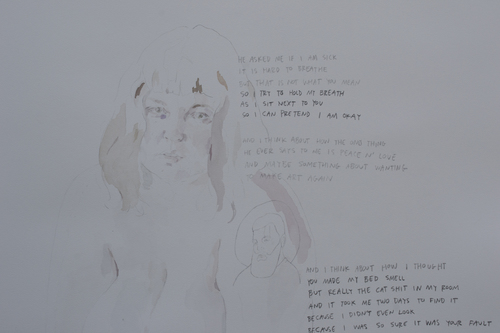 HE ASKED ME IF I AM SICK
IT IS HARD TO BREATHE
BUT THAT IS NOT WHAT HE MEAN
SO I TRY TO HOLD MY BREATH
AS I SIT NEXT TO YOU
SO I CAN PRETEND I AM OKAY
AND I THINK ABOUT HOW THE ONE THING
HE EVER SAYS TO ME IS PEACE N' LOVE
AND MAYBE SOMETHING ABOUT WANTING
TO MAKE ART AGAIN
AND I THINK ABOUT HOW I THOUGHT
YOU MADE MY BED SMELL
BUT REALLY THE CAT SHIT IN MY ROOM
AND IT TOOK ME TWO DAYS TO FIND IT
BECAUSE I DIDN'T EVEN LOOK
BECAUSE I WAS SO SURE IT WAS YOUR FAULT